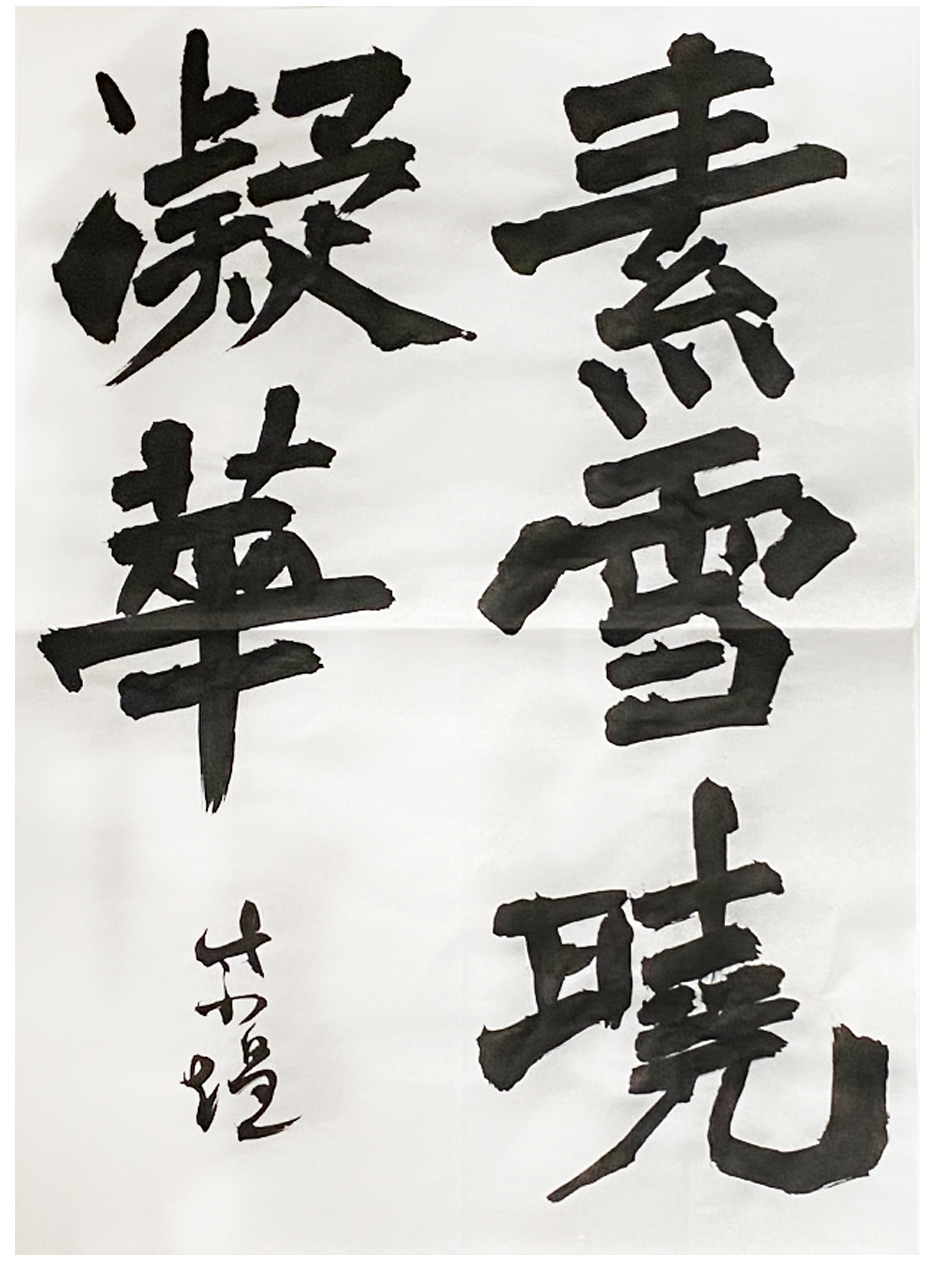 素雪曉
凝華